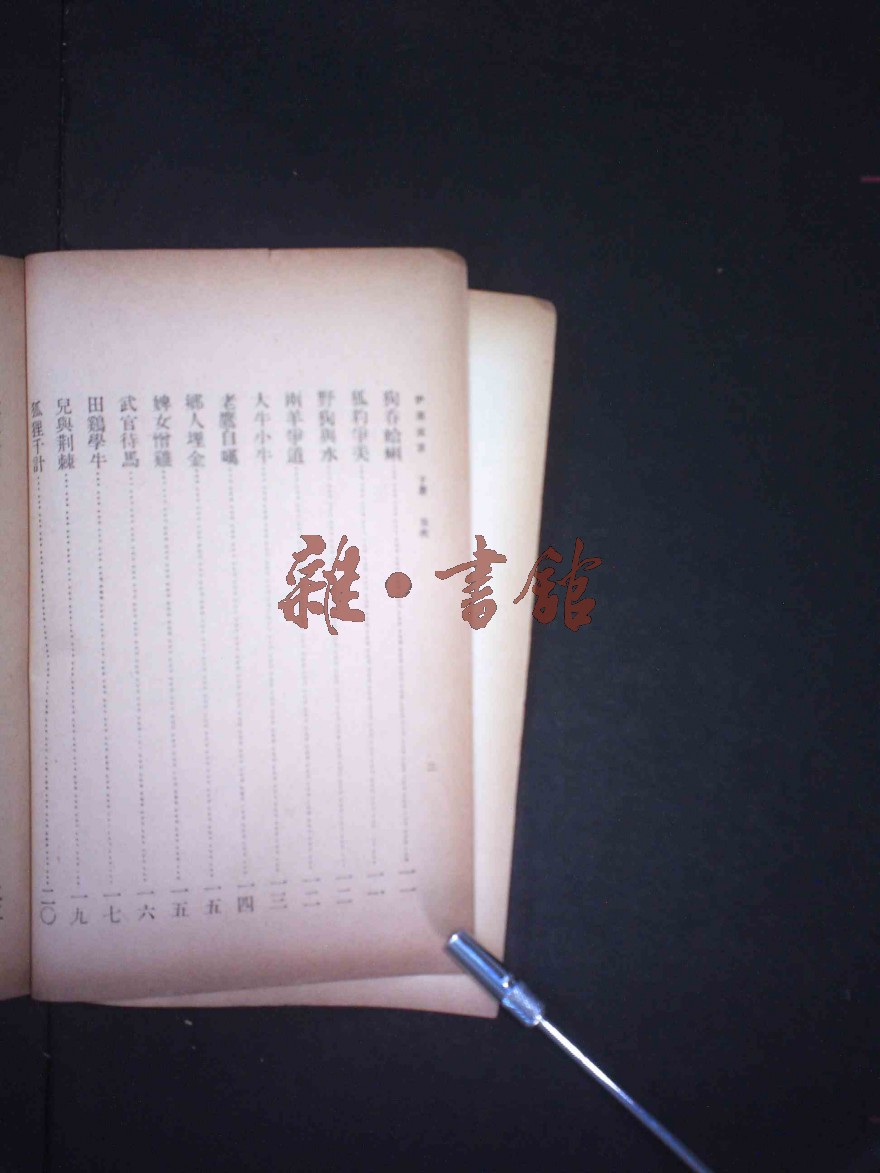 伊索寓言　下冊　目次
二
狗吞蛤蜊……一一
狐豹爭美……一一
野狗與水……一二
兩羊爭道……一二
大牛小牛……一三
老鷹自嘆……一四
鄉人埋金……一五
婢女憎雞……一五
武官待馬……一六
田鷄學牛……一七
兒與荆棘……一九
狐狸千計……二〇
雜·書館